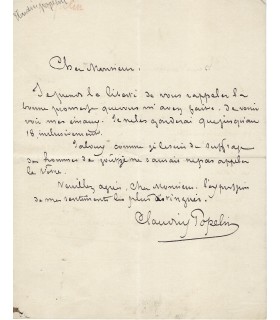 Cher Monsieur.
Je prends la liberté de vous rappeler la
bonne promesse que vous m'avez faite. De venir
voir mes émaux. Je ne les garderai que jusqu'au
18 inclusivement.
Jaloux comme je le suis du suffrage
des hommes de goût je ne saurais ne pas appeler
le vôtre.
Veuillez agréer, Cher Monsieur, l'expression
de mes sentiments les plus distingués.
Claudius Popelin